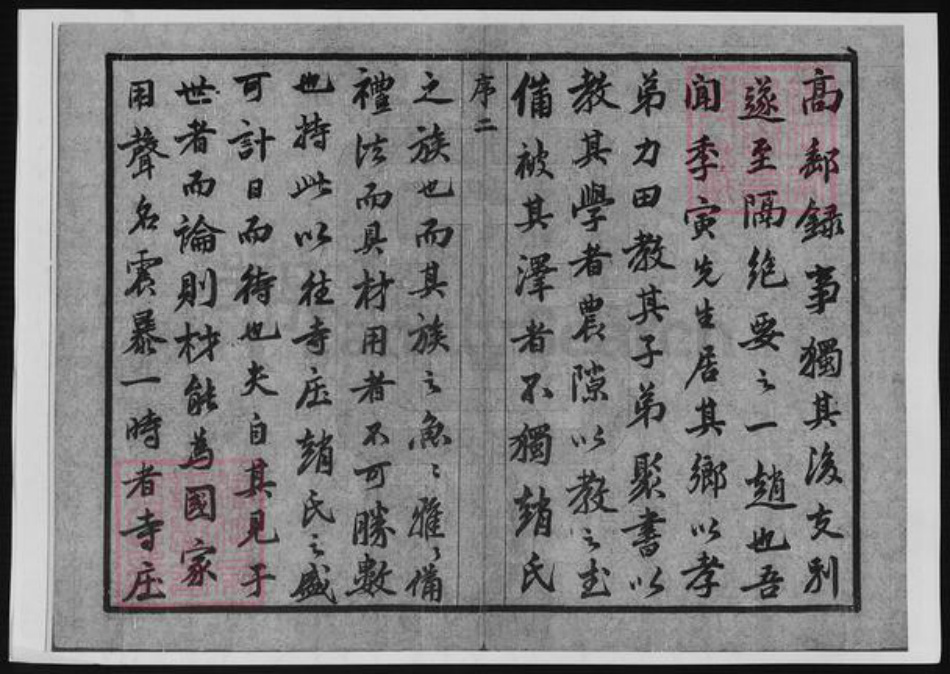 高郵録事獨其後支别
遂至隔絶要之一趙也吾
聞季寅先生居其鄉以孝
弟力田教其子弟聚書以
教其學者農隙以教之武
備被其澤者不獨趙氏
序二
之族也而其族之魚〻雅〻備
禮法而具材用者不可勝數
也持此以往寺庄趙氏之盛
可計日而待也夫自其見于
世者而論則材能為國家
用聲名震暴一時者寺庄